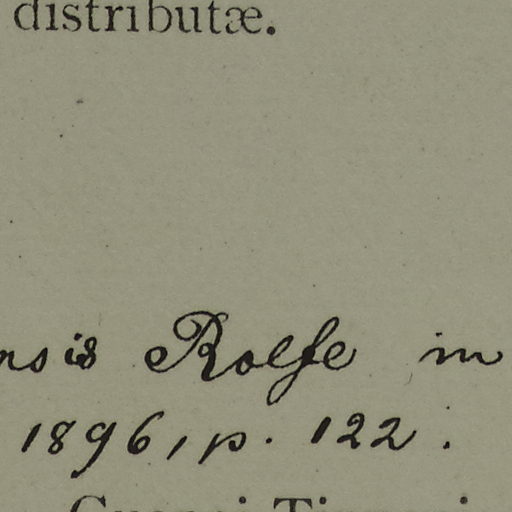 distributæ.
nsis Rolfe in
1896, p. 122.